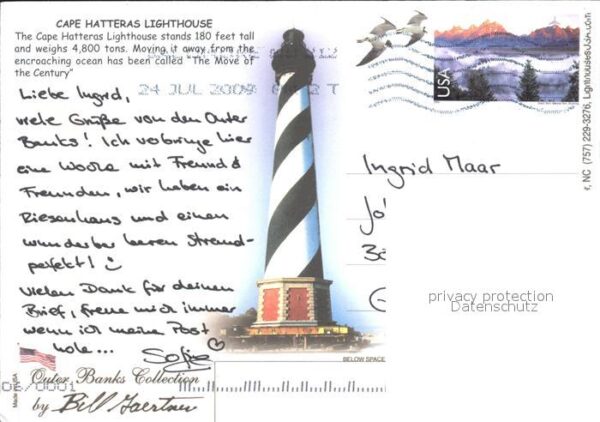 CAPE HATTERAS LIGHTHOUSE
The Cape Hatteras Lighthouse stands 180 feet tall
and weighs 4,800 tons. Moving it away from the
encroaching ocean has been called "The Move of
the Century"
24 JUL 2009
Liebe Ingrid,
viele Grüße von den Outer
Banks! Ich verbringe hier
eine Woche mit Freund &
Freunden, wir haben ein
Riesenhaus und einen
wunderbar leeren Strand –
perfekt!
Vielen Dank für deinen
Brief, freue mich immer
wenn ich meine Post
hole...
Sofie
Ingrid Maar
Jo
G
USA
r, NC (757) 229-3276,
privacy protection
Datenschutz
BELOW SPACE
Made in USA
Outer Banks Collection
by Bill Gaertner